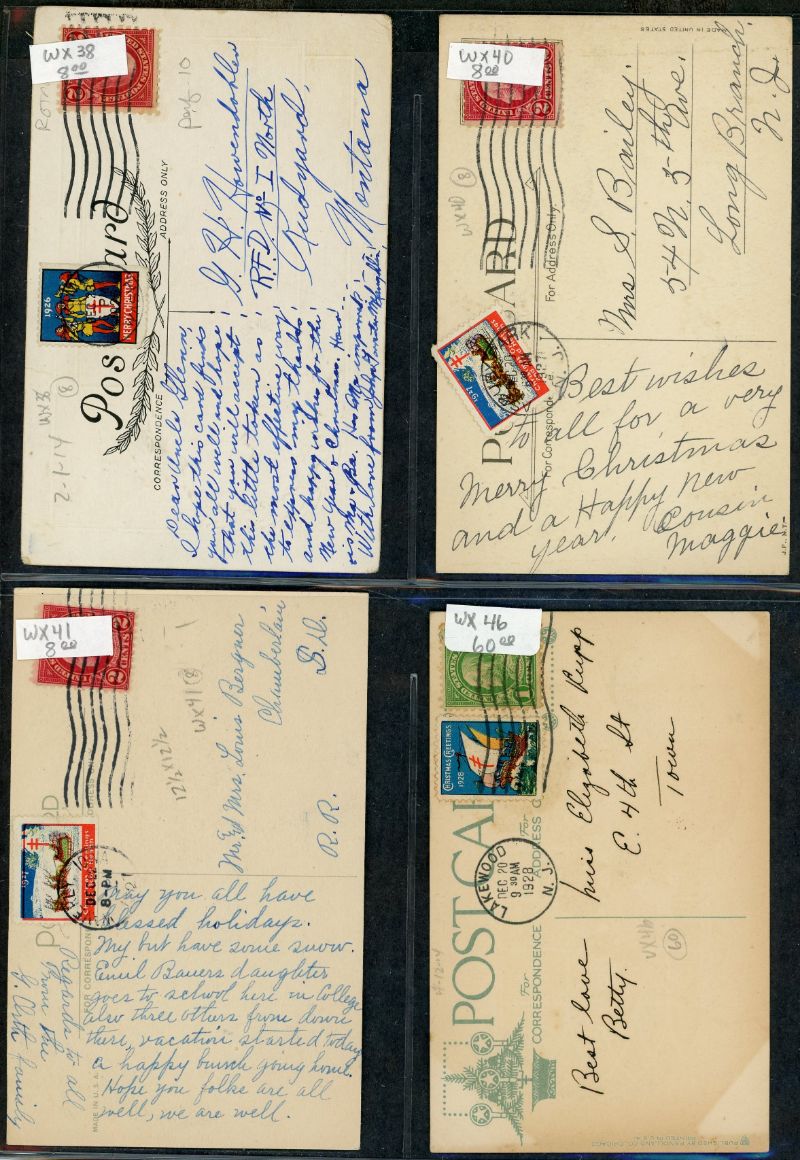 WX 38
8.00
2
CENTS
perf 10
POST CARD
ADDRESS ONLY
CORRESPONDENCE
1926
MERRY CHRISTMAS
WX38
8
2-1-14
R.F.D. No I North
Rudyard,
Montana
I hope this card finds
you all well. I hope
that you will accept
this little token as
the most effective way
to express my thanks
and happy wishes for the
New Year & Christmas. How
is Ma & Pa.
With love from
WX40
8.00
2
MADE IN UNITED STATES
WX40
8
POST CARD
For Address Only
For Correspondence
1927
Mrs S. Bailey.
54 N. 5-th Ave.
Long Branch.
N. J.
Best wishes
to all for a very
Merry Christmas
and a Happy New
year. Cousin
Maggie
WX41
8.00
2 CENTS 2
12½X12½
WX41
8
1927
DEC
8-PM
Mr & Mrs. Louis Bergner
Chamberlain
R. R.
S. D.
FOR CORRESPONDENCE
MADE IN U.S.A.
May you all have
blessed holidays.
My but have some snow.
Emil Bauers daughter
goes to school here in College
also three others from down
there, vacation started today
a happy bunch going home.
Hope you folks are all
well, we are well.
Regards to all
from the
Family
WX 46
60.00
1
CHRISTMAS GREETINGS
1928
LAKEWOOD
DEC 20
9 30 AM
1928
N. J.
POST CARD
For
ADDRESS
For
CORRESPONDENCE
Miss Elizabeth Rupp
E. 4th St
Town
WX46
60
Best love
Betty.